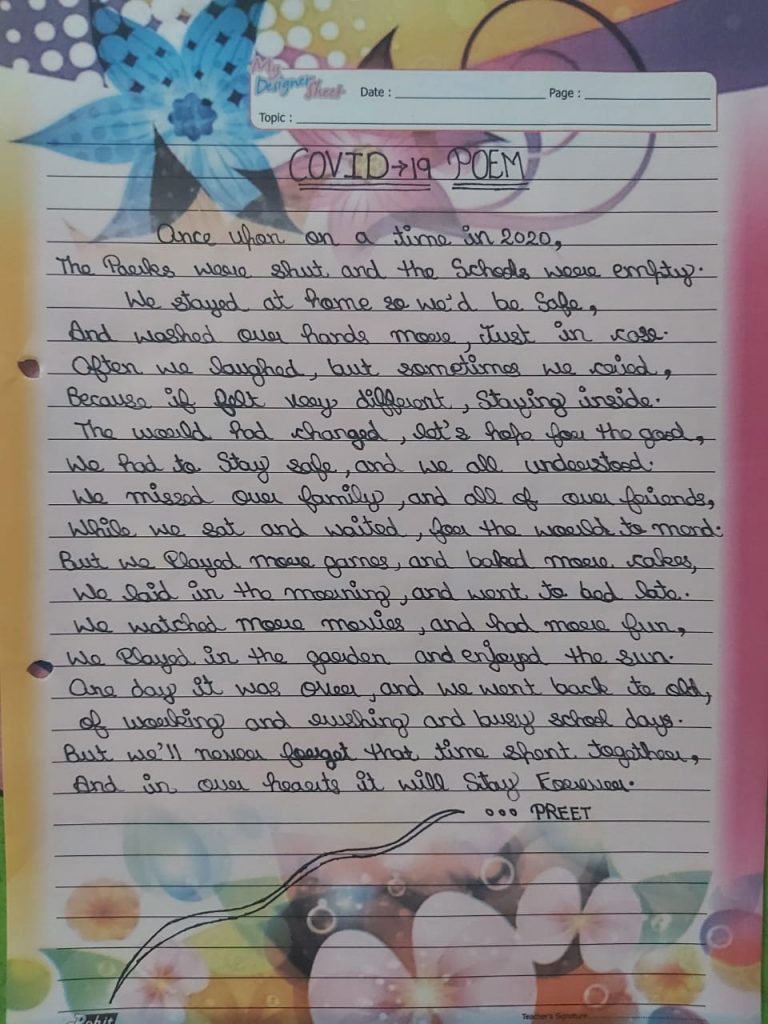 My
Designer Sheet
Date :
Page :
Topic :
COVID→19 POEM
Once upon on a time in 2020,
The Parks were shut and the Schools were empty.
We stayed at home so we'd be Safe,
And washed our hands more, Just in case.
Often we laughed, but sometimes we cried,
Because if felt very different, Staying inside.
The world had changed, let's hope for the good,
We had to Stay safe, and we all understood.
We missed our family, and all of our friends,
While we sat and waited, for the world to mend.
But we Played more games, and baked more cakes,
We laid in the morning, and went to bed late.
We watched more movies, and had more fun,
We Played in the garden and enjoyed the sun.
One day it was over, and we went back to old,
of working and rushing and busy school days.
But we'll never forget that time spent together,
And in our hearts it will Stay Forever.
... PREET
Rohit
Teacher's Signature